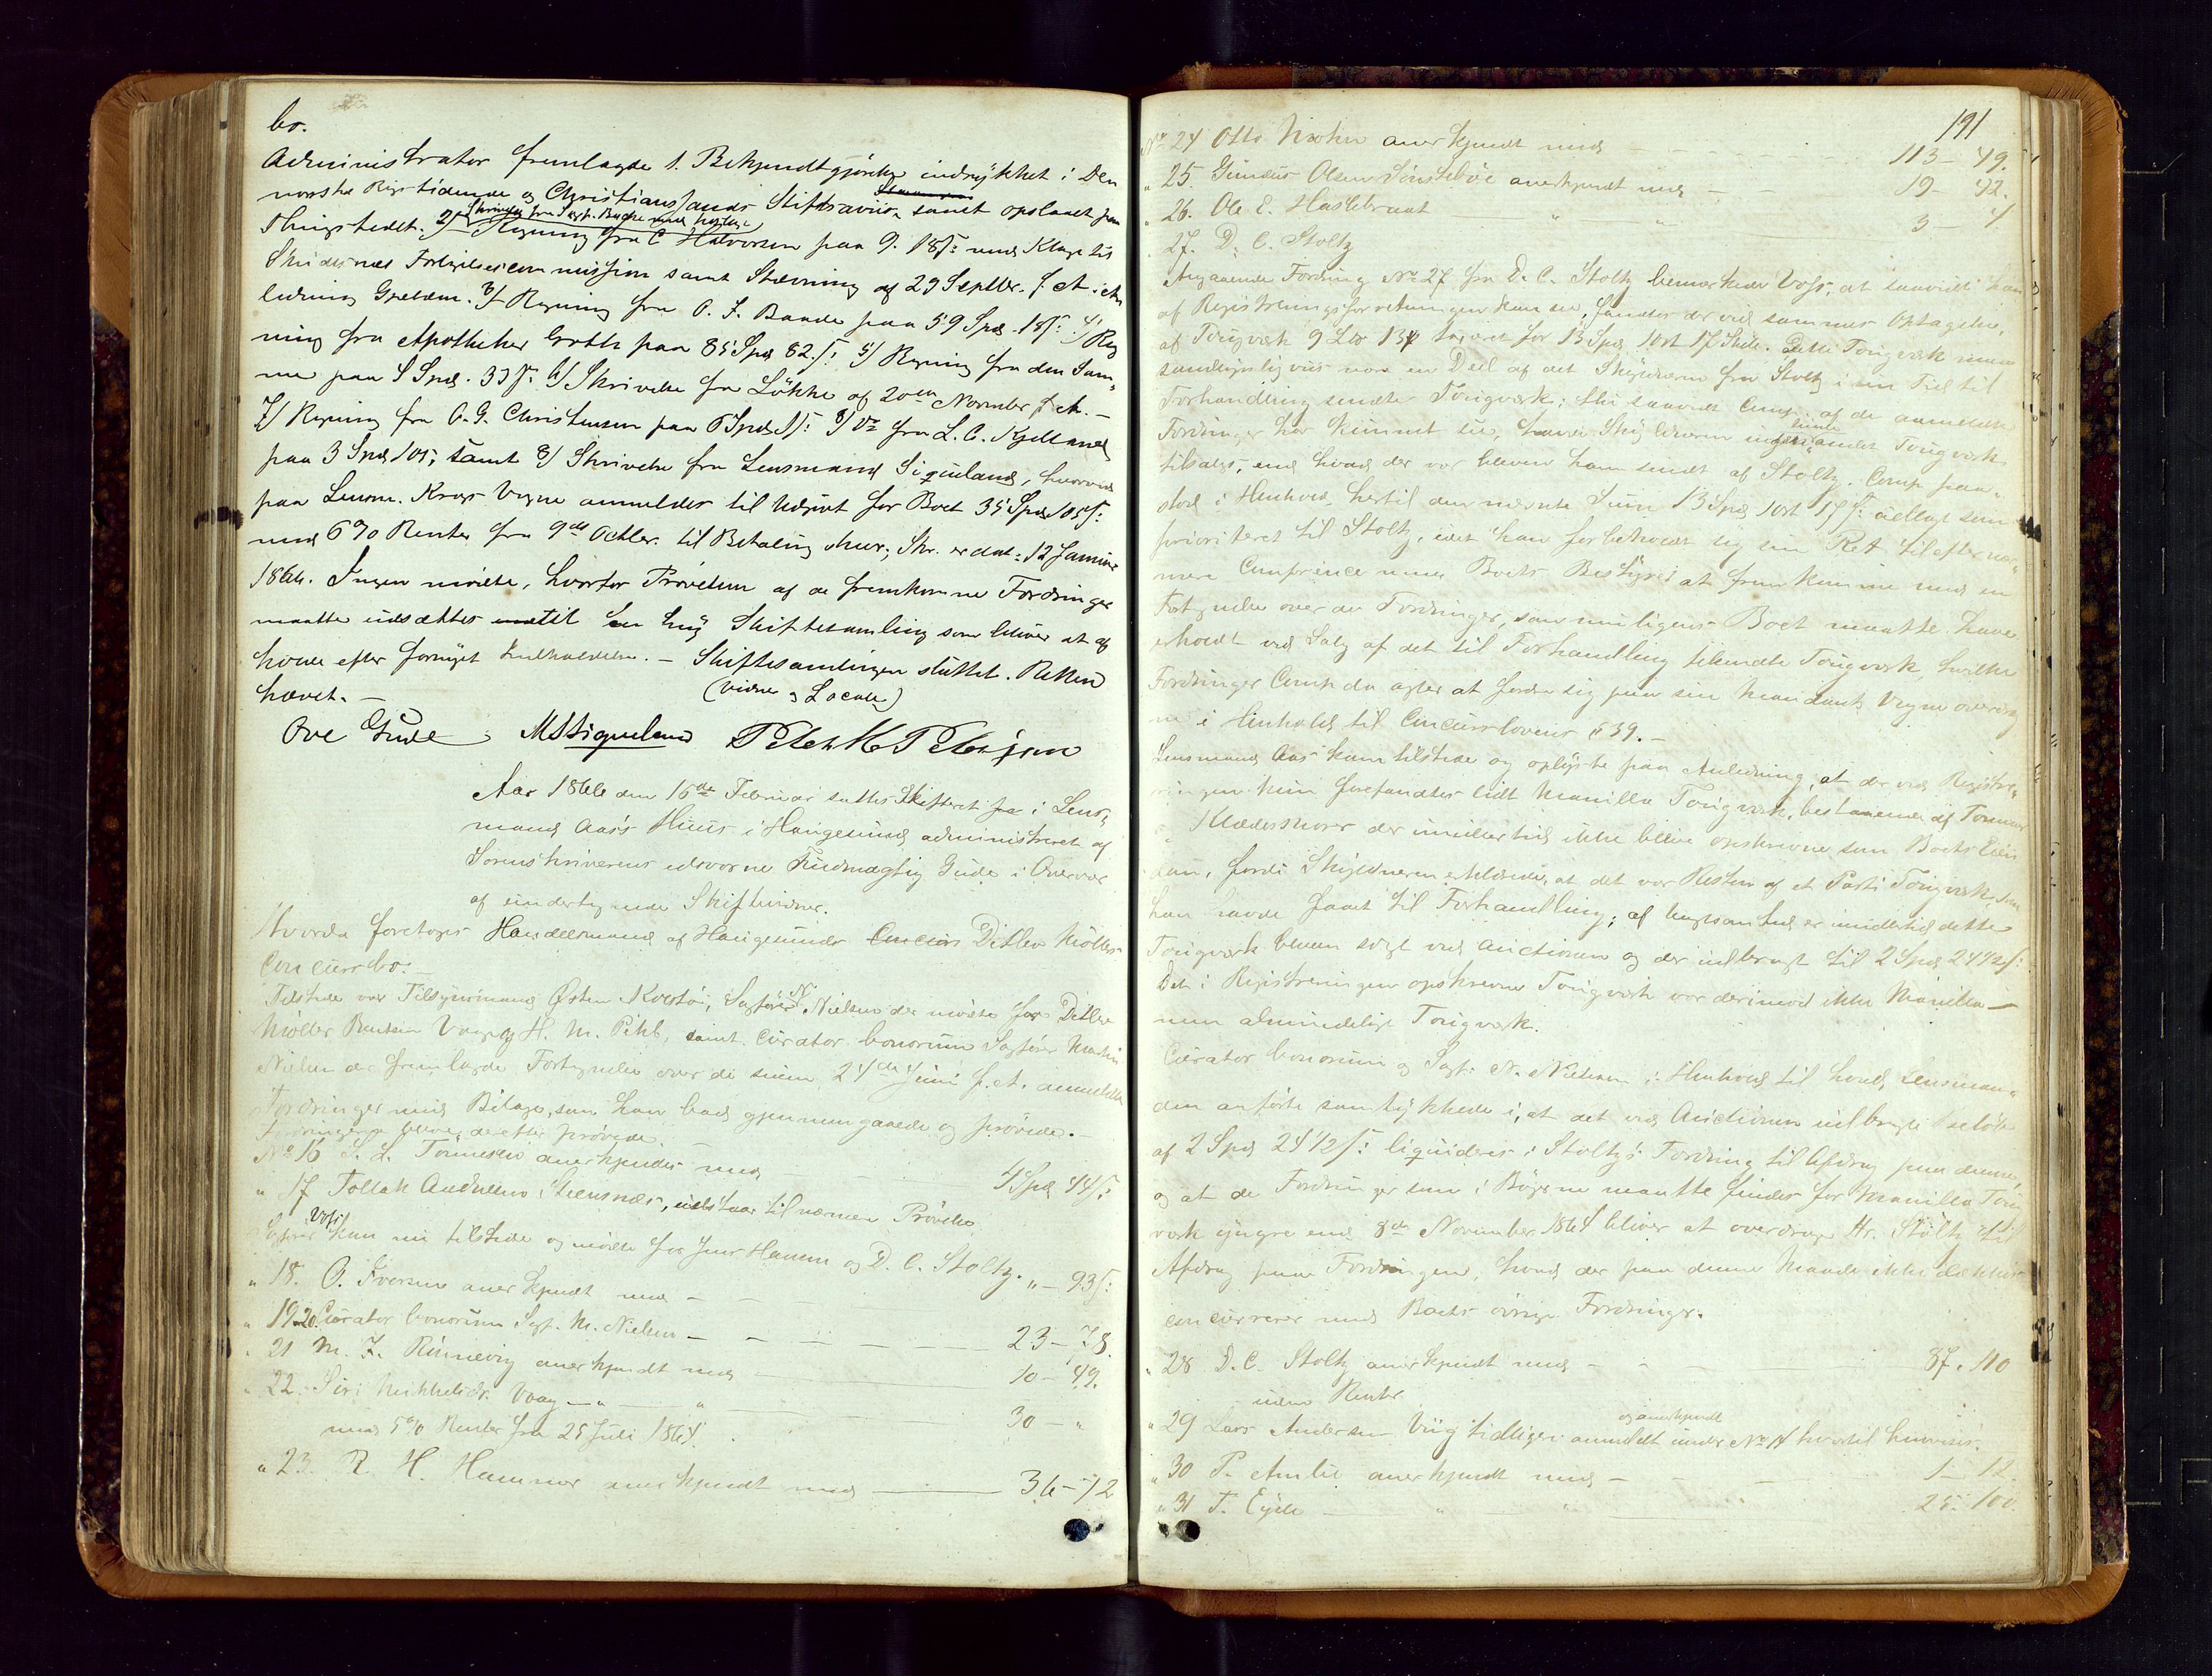 bo.
Administrator fremlagde 1. Bekjendtgjørelse indrykket i Den
norske Rigstidende og Christianssands Stiftsavis samt opslaaet paa
Thingstedet. 2/ Skrivelse fra Sagf. Bucke med
Regning fra C Halvorsen paa 9. 18 s: med Klage til
Skudesnæs Forligelsescommission samt Stævning af 29 Septbr. f. A. i An
ledning Gjælden. 3/ Regning fra O. J. Baade paa 59 Spd. 18 s: 4/ Reg
ning fra Apotheker Groth paa 85 Spd 82 s: 5/ Regning fra den Sam,
me paa 8 Spd. 33 s: 6/ Skrivelse fra Løkke af 20de November f. A. —
7/ Regning fra O. G. Christensen paa 6 Spd 8/ Do fra L. C. Kjelland
paa 3 Spd 101; samt 8/ Skrivelse fra Lensmand Siqueland, hvorved
paa Lensm. Krags Vegne anmeldes til Udgivt for Boet 35 Spd 105 s:
med 6 % Renter fra 9de Octbr. til Betaling skeer; Skr. er dat: 12 Januar
1866. Ingen mødte, hvorfor Prøvelsen af de fremkomne Fordringer
maatte udsættes til Skiftesamling som bliver at af
holde efter fornyet Indkaldelse. — Skiftesamlingen sluttet. Retten
hævet. — (Vidne & Locale)
Ove Gude MSSiqueland Peter M Petersen
Aar 1866 den 16de Februar sattes Skifteret i Lens,
mand Aas's Huus i Haugesund administreret af
Sorenskriverens edsvorne Fuldmægtig Gude i Overvær
af undertegnede Skiftevidner.
Hvorda foretoges Handelsmand af Haugesund Ditlev Møllers
Concursbo. —
Tilstede var Tilsynsmand Østen Kvestø, Sagfører N. Nielsen der mødte for Ditlev
Møller Bentsen Vaage og H. M. Pihl, samt Curator bonorum Sagfører Martin
Nielsen der fremlagde Fortegnelse over de siden 24de Juni f. A. anmeldte
Fordringer med Bilage, som han bad gjennemgaaede og prøvede. —
Fordringerne bleve derefter prøvede.
No 16 S. L. Tonnesen anerkjendes med — 4 Spd 44 s:
" 17 Tollak Andersen Steensnæs, udstaar til nærmere Prøvelse
Sagfører Voss kom nu tilstede og mødte for Jens Hansen og D. C. Stoltz.
" 18. O. Iversen anerkjendt med — " — 93 s:
" 19-20 Curator bonorum Sagf. M. Nielsen — 23 — 78.
" 21 M. Z. Rinnevig anerkjendt med — 10 — 49.
" 22. Siri Mikkelsdr. Vaag — " — " — 30 — "
med 5 % Renter fra 25 Juli 1864.
" 23. R. H. Hammer anerkjendt med — 36 — 72
191
No 24 Otto Krohn anerkjendt med — 113 — 49.
" 25. Gunder Olsen Sønstebøe anerkjendt med — 19 — 92.
" 26. Ole E. Hasselbraat " " — 3 — 4
" 27. D. C. Stoltz
Angaaende Fordring No 27 fra D. C. Stoltz bemærkede Voss, at saavidt han
af Registreringsforretningen kan see, fandtes der ved sammes Optagelse,
af Tougværk 9 taxeret for 13 Spd 1 ort 17 Skill. Dette Tougværk maa
sandsynligviis være en Deel af det Skyldneren fra Stoltz i sin Tid til
Forhandling sendte Tougværk; thi saavidt Comp. af de anmeldte
Fordringer har kunnet see, havde Skyldneren intet andet Tougværk
tilsalgs, end hvad der var bleven ham sendt af Stoltz. Comp paa,
stod i Henhold hertil den nævnte Sum 13 Spd 1 ort 17 s: udlagt som
prioriteret til Stoltz, idet han forbeholdt sig sin Ret til efter nær,
mere Conference med Boets Bestyrer at fremkomme med en
Fortegnelse over de Fordringer, som muligens Boet maatte have
erholdt ved Salg af det til Forhandling tilsendte Tougværk, hvilke
Fordringer Comp da agter at fordre sig paa sin Mandants Vegne overdrag
ne i Henhold til Concurslovens § 39. —
Lensmand Aas kom tilstede og oplyste paa Anledning, at der ved Registre,
ringen kun forefandtes lidt Manilla Tougværk, bestaaende af Tommer
og Klædessnorer der imidlertid ikke bleve opskrevne som Boets Eien
dom, fordi Skyldneren erklærede, at det var Resten af et Parti Tougværk som
han havde faaet til Forhandling; af Uagtsomhed er imidlertid dette
Tougværk bleven solgt ved Auctionen og der indbragt til 2 Spd 24 1/2 s:
Det i Registreringen opskrevne Tougværk var derimod ikke Manilla —
men almindeligt Tougværk.
Curator bonorum og Sagf: N. Nielsen i Henhold til hvad Lensman,
den anførte samtykkede i, at det ved Auctionen indbragte Beløb
af 2 Spd 24 1/2 s: liquideres i Stoltz's Fordring til Afdrag paa denne,
og at de Fordringer som i Bøgerne maatte findes for Manilla Toug
værk yngre end 8de November 1864 bliver at overdrage Hr. Stoltz til
Afdrag paa Fordringen, hvad der paa denne Maade ikke dækkes
concurrerer med Boets øvrige Fordringer.
" 28 D. C. Stoltz anerkjendt med — 87. 110
uden Renter
" 29 Lars Andersen Viig tidligere anmeldt og anerkjendt under No 14 hvortil henvises.
" 30 P. Amlie anerkjendt med — 1 — 12.
" 31 T. Eyde — " — " — 25. 100.